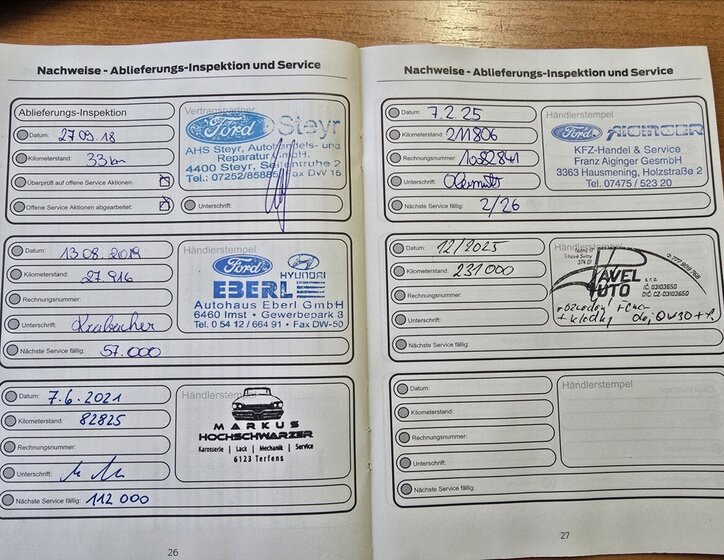 Nachweise - Ablieferungs-Inspektion und Service
Ablieferungs-Inspektion
Datum: 27.09.18
Kilometerstand: 33 km
Überprüft auf offene Service Aktionen:
Offene Service Aktionen abgearbeitet:
Vertragspartner
Ford Steyr
AHS Steyr, Autohandels- und
Reparatur GmbH.
4400 Steyr, Seitentruhe 2
Tel.: 07252/85885 Fax DW 15
Unterschrift:
Datum: 13.08.2019
Kilometerstand: 27.916
Rechnungsnummer:
Unterschrift:
Nächste Service fällig: 57.000
Händlerstempel
Ford HYUNDAI
EBERL
Autohaus Eberl GmbH
6460 Imst • Gewerbepark 3
Tel. 0 54 12 / 664 91 • Fax DW-50
Datum: 7.6.2021
Kilometerstand: 82825
Rechnungsnummer:
Unterschrift:
Nächste Service fällig: 112 000
Händlerstempel
MARKUS
HOCHSCHWARZER
Karosserie | Lack | Mechanik | Service
6123 Terfens
26
Nachweise - Ablieferungs-Inspektion und Service
Datum: 7.2.25
Kilometerstand: 211806
Rechnungsnummer: 1082841
Unterschrift:
Nächste Service fällig: 2/26
Händlerstempel
Ford AIGINGER
KFZ-Handel & Service
Franz Aiginger GesmbH
3363 Hausmening, Holzstraße 2
Tel. 07475 / 523 20
Datum: 12/2025
Kilometerstand: 231000
Rechnungsnummer:
Unterschrift:
Nächste Service fällig:
Händlerstempel
374 01
PAVEL
AUTO s.r.o.
IČ: 03103650
DIČ: CZ-03103650
Datum:
Kilometerstand:
Rechnungsnummer:
Unterschrift:
Nächste Service fällig:
Händlerstempel
27